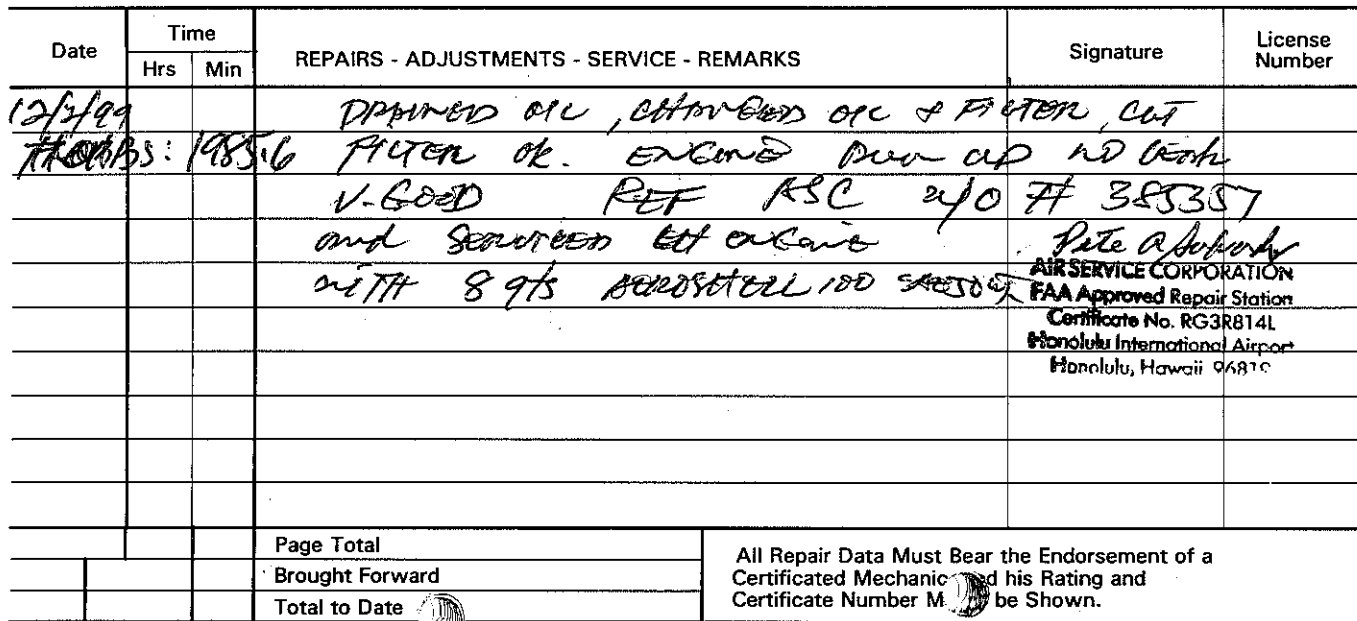 Date Time REPAIRS - ADJUSTMENTS - SERVICE - REMARKS Signature License Number
Hrs Min
DRAINED OIL, CHANGED OIL & FILTER, CUT
1985.6 FILTER OK. ENGINE RUN UP NO LEAK
V-GOOD REF ASC W/O # 385357
and SERVICED ENGINE Pete
WITH 8 qts AEROSHELL 100
AIR SERVICE CORPORATION
FAA Approved Repair Station
Certificate No. RG3R814L
Honolulu International Airport
Honolulu, Hawaii
Page Total
Brought Forward
Total to Date
All Repair Data Must Bear the Endorsement of a
Certificated Mechanic his Rating and
Certificate Number be Shown.